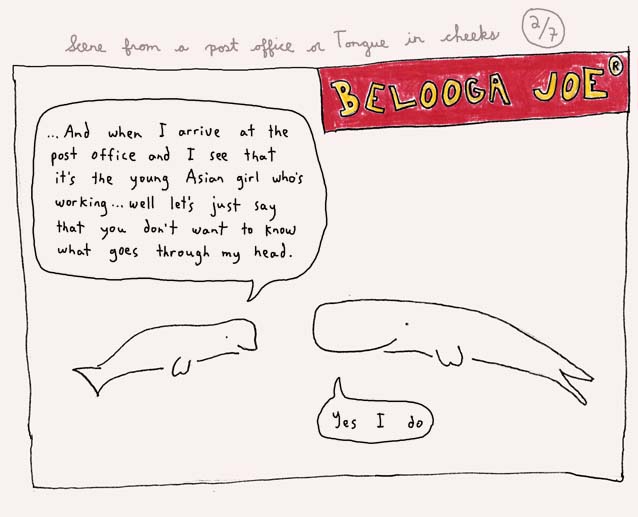 Scene from a post office or Tongue in cheeks 2/7
BELOOGA JOE ®
...And when I arrive at the
post office and I see that
it's the young Asian girl who's
working... well let's just say
that you don't want to know
what goes through my head.
Yes I do